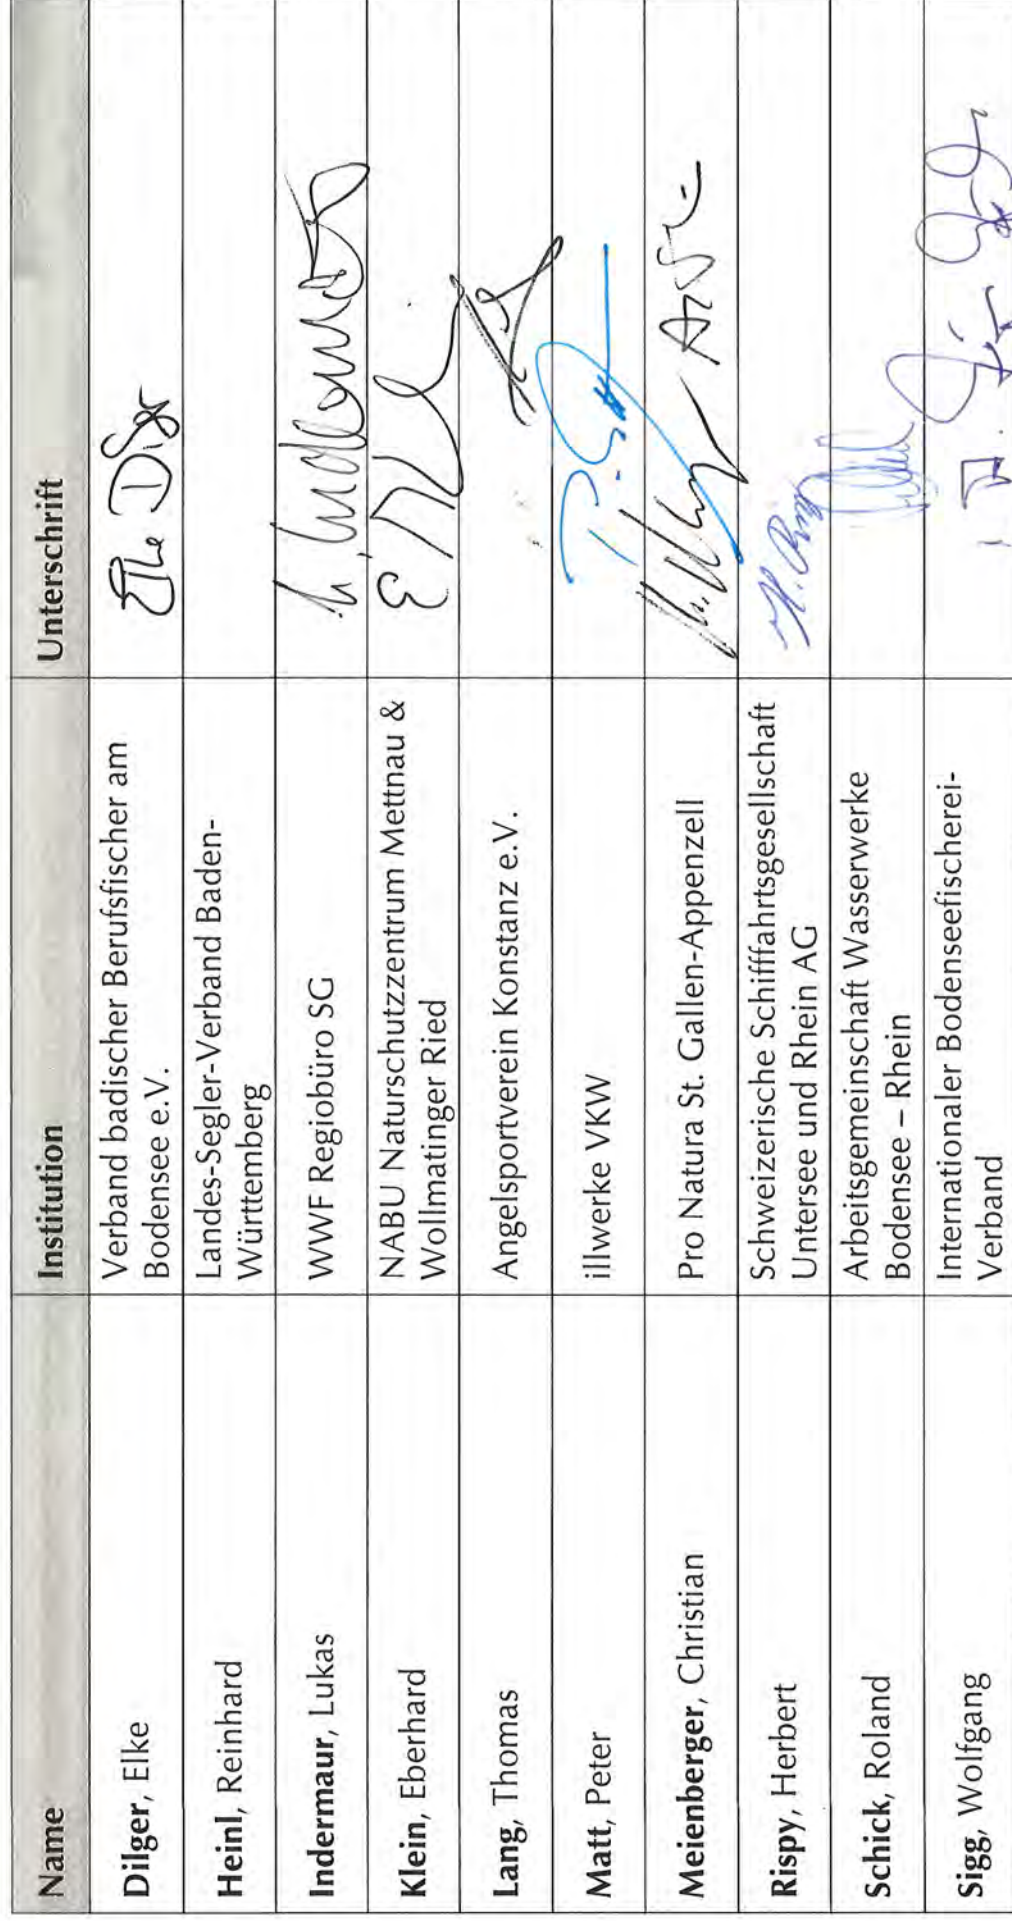 Name Institution Unterschrift
Dilger, Elke Verband badischer Berufsfischer am
Bodensee e.V.
Heinl, Reinhard Landes-Segler-Verband Baden-
Württemberg
Indermaur, Lukas WWF Regiobüro SG
Klein, Eberhard NABU Naturschutzzentrum Mettnau &
Wollmatinger Ried
Lang, Thomas Angelsportverein Konstanz e.V.
Matt, Peter illwerke VKW
Meienberger, Christian Pro Natura St. Gallen-Appenzell
Rispy, Herbert Schweizerische Schifffahrtsgesellschaft
Untersee und Rhein AG
Schick, Roland Arbeitsgemeinschaft Wasserwerke
Bodensee – Rhein
Sigg, Wolfgang Internationaler Bodenseefischerei-
Verband